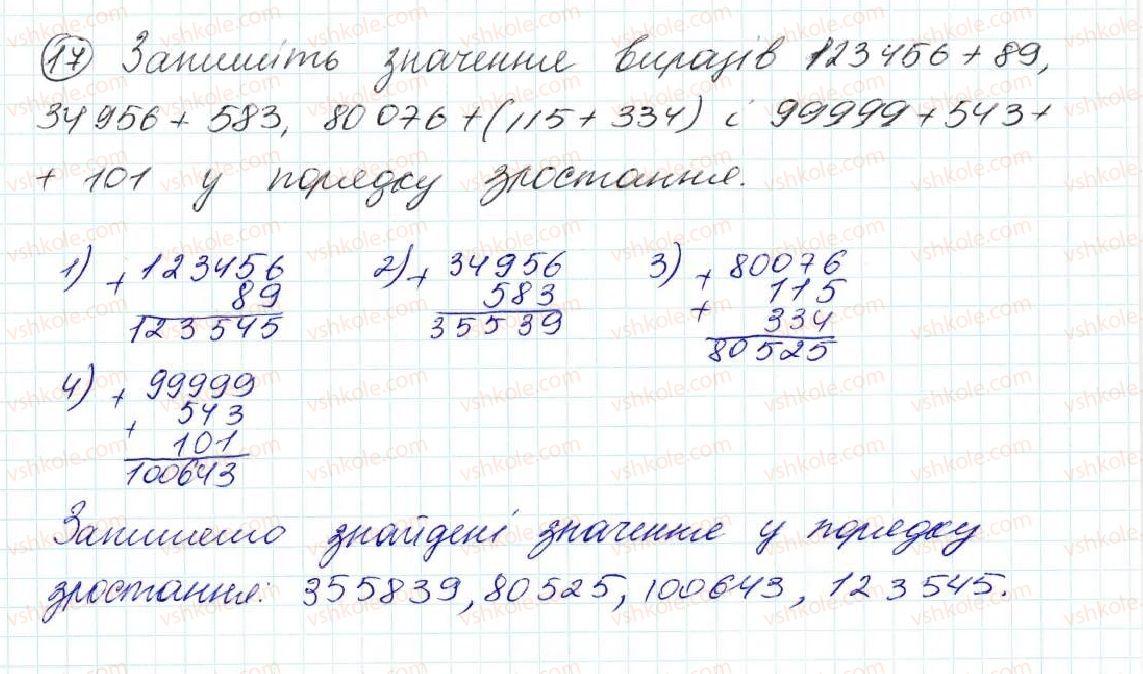 17 Запишіть значення виразів 123456 + 89,
34956 + 583, 80076 + (115 + 334) і 99999 + 543 +
+ 101 у порядку зростання.
1) + 123456 2) + 34956 3) + 80076
89 583 115
123545 35539 + 334
80525
4) + 99999
+ 543
101
100643
Запишемо знайдені значення у порядку
зростання: 355839, 80525, 100643, 123545.